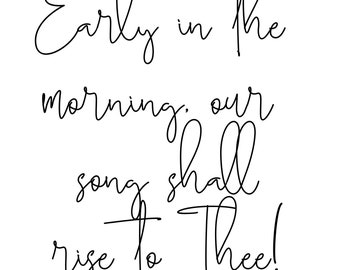 Early in the
morning, our
song shall
rise to Thee!